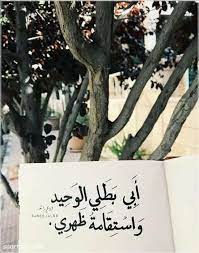 أَبي بَطَلي الوَحيد
وَاسْتِقامَةُ ظَهْري.